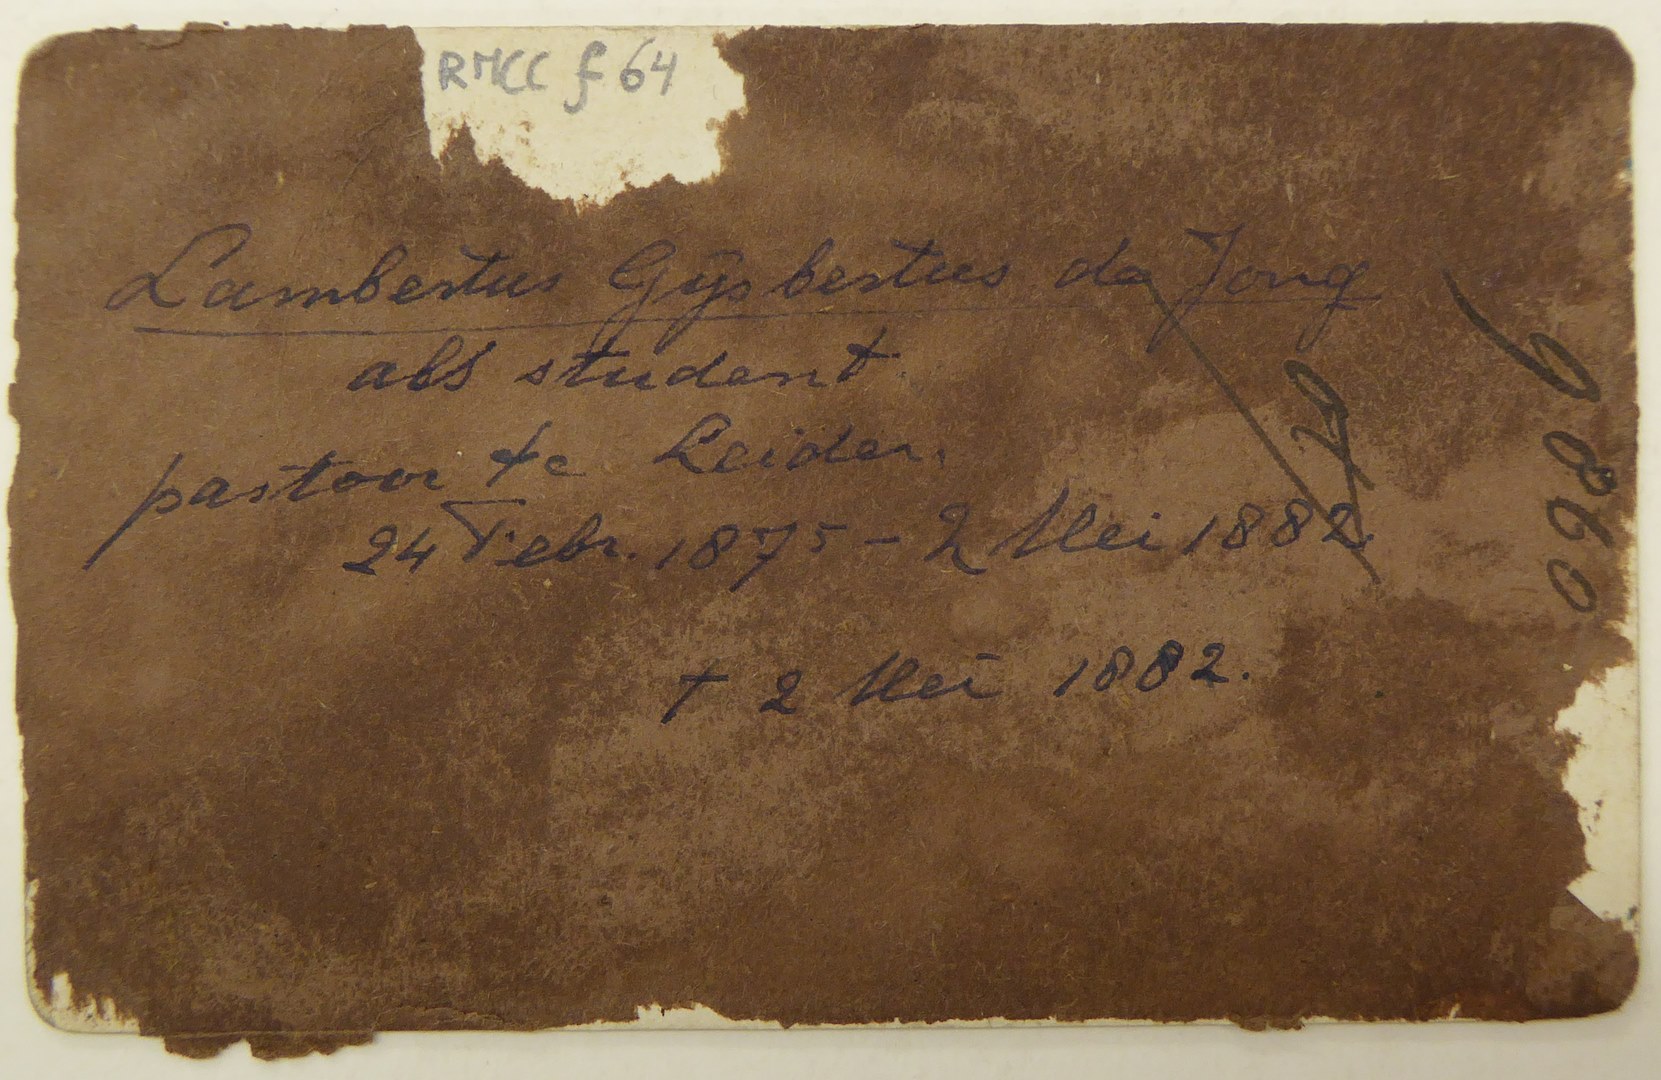 RMCC f 64
Lambertus Gijsbertus de Jong
als student.
pastoor te Leiden.
24 Febr. 1875 - 2 Mei 1882.
† 2 Mei 1882.